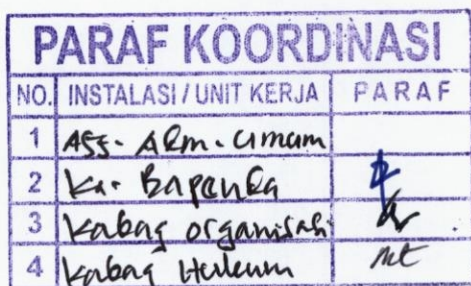 PARAF KOORDINASI
NO. INSTALASI / UNIT KERJA PARAF
1 Ass. Adm. Umum
2 Ka. Bapenda
3 Kabag organisasi
4 Kabag Hukum